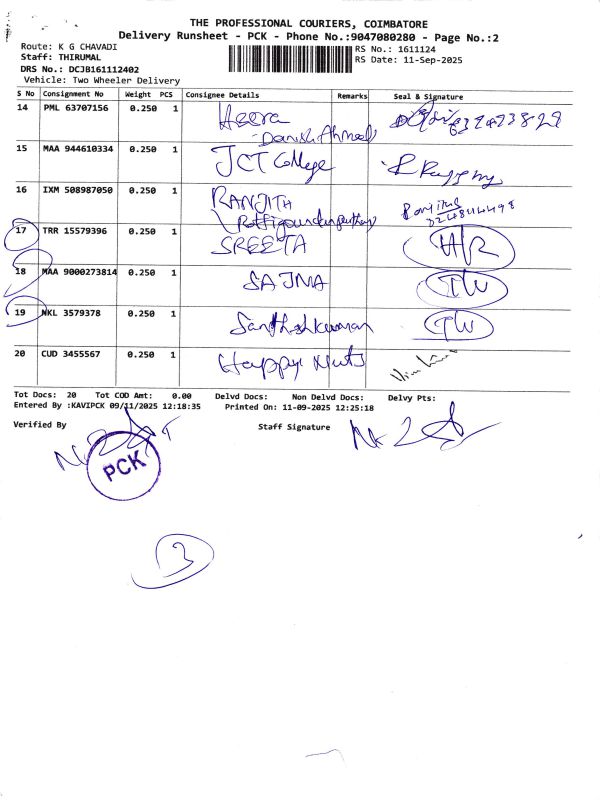 THE PROFESSIONAL COURIERS, COIMBATORE
Delivery Runsheet - PCK - Phone No.:9047080280 - Page No.:2
Route: K G CHAVADI
RS No.: 1611124
Staff: THIRUMAL
RS Date: 11-Sep-2025
DRS No.: DCJB161112402
Vehicle: Two Wheeler Delivery
S No Consignment No Weight PCS Consignee Details Remarks Seal & Signature
14 PML 63707156 0.250 1 Heera
Danish Ahmed
15 MAA 944610334 0.250 1 JCT College
16 IXM 508987050 0.250 1 RANJITH
17 TRR 15579396 0.250 1 SREEJA H/R
18 MAA 9000273814 0.250 1 SAJNA IW
19 NKL 3579378 0.250 1 Santhoshkumar IW
20 CUD 3455567 0.250 1 Happy Nuts
Tot Docs: 20 Tot COD Amt: 0.00 Delvd Docs: Non Delvd Docs: Delvy Pts:
Entered By :KAVIPCK 09/11/2025 12:18:35 Printed On: 11-09-2025 12:25:18
Verified By Staff Signature
PCK
3